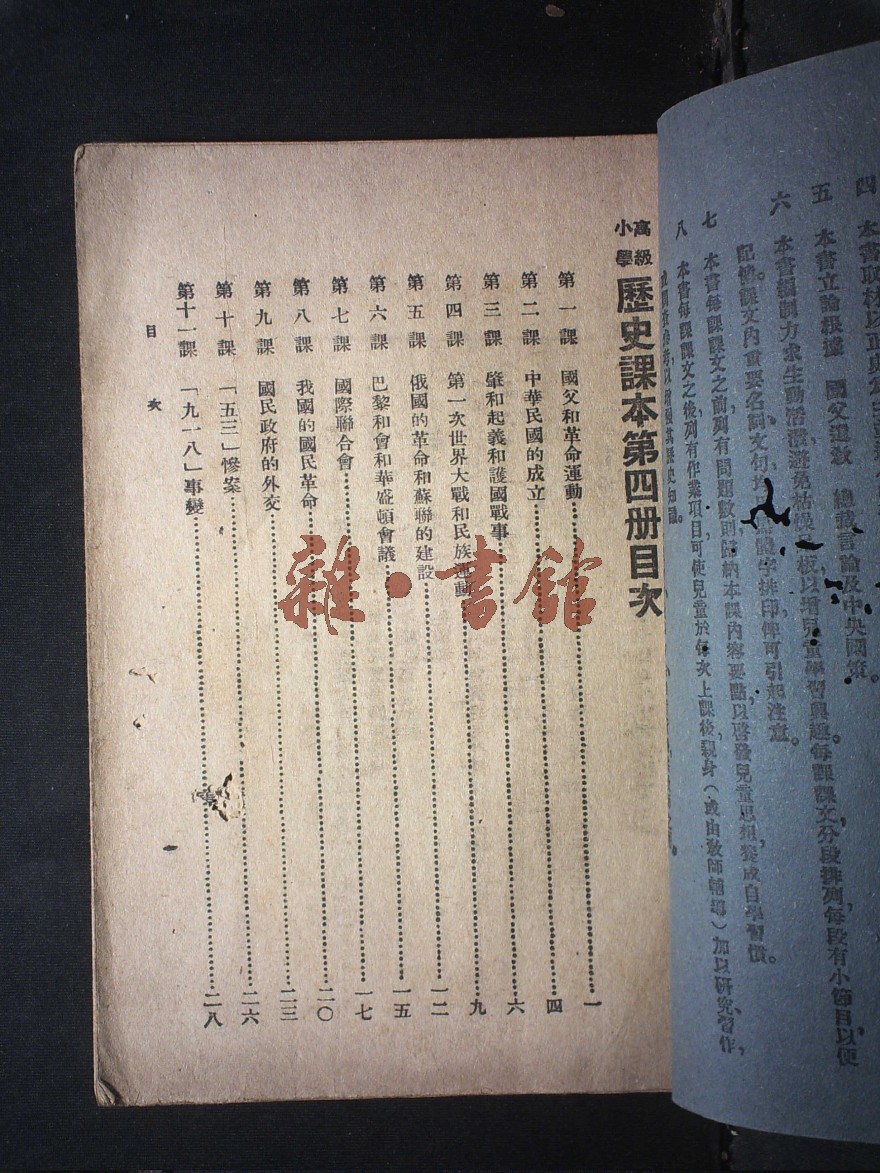 四 本書取材以正
五 本書立論根據 國父遺教 總裁言論及中央國策。
六 本書編制力求生動活潑避免枯燥板以增兒童學習興趣每課課文分段排列每段有小節目以便
記憶。課文內重要名詞文句排印俾可引起注意。
七 本書每課課文之前列有問題數則歸納本課內容要點以啓發兒童思想養成自學習慣。
八 本書每課課文之後列有作業項目可使兒童於每次上課後親身(或由教師輔導)加以研究習作,
高級小學 歷史課本第四册目次
第一課 國父和革命運動 一
第二課 中華民國的成立 四
第三課 肇和起義和護國戰事 六
第四課 第一次世界大戰和民族運動 九
第五課 俄國的革命和蘇聯的建設 一二
第六課 巴黎和會和華盛頓會議 一五
第七課 國際聯合會 一七
第八課 我國的國民革命 二〇
第九課 國民政府的外交 二三
第十課 「五三」慘案 二六
第十一課 「九一八」事變 二八
目次
雜·書館